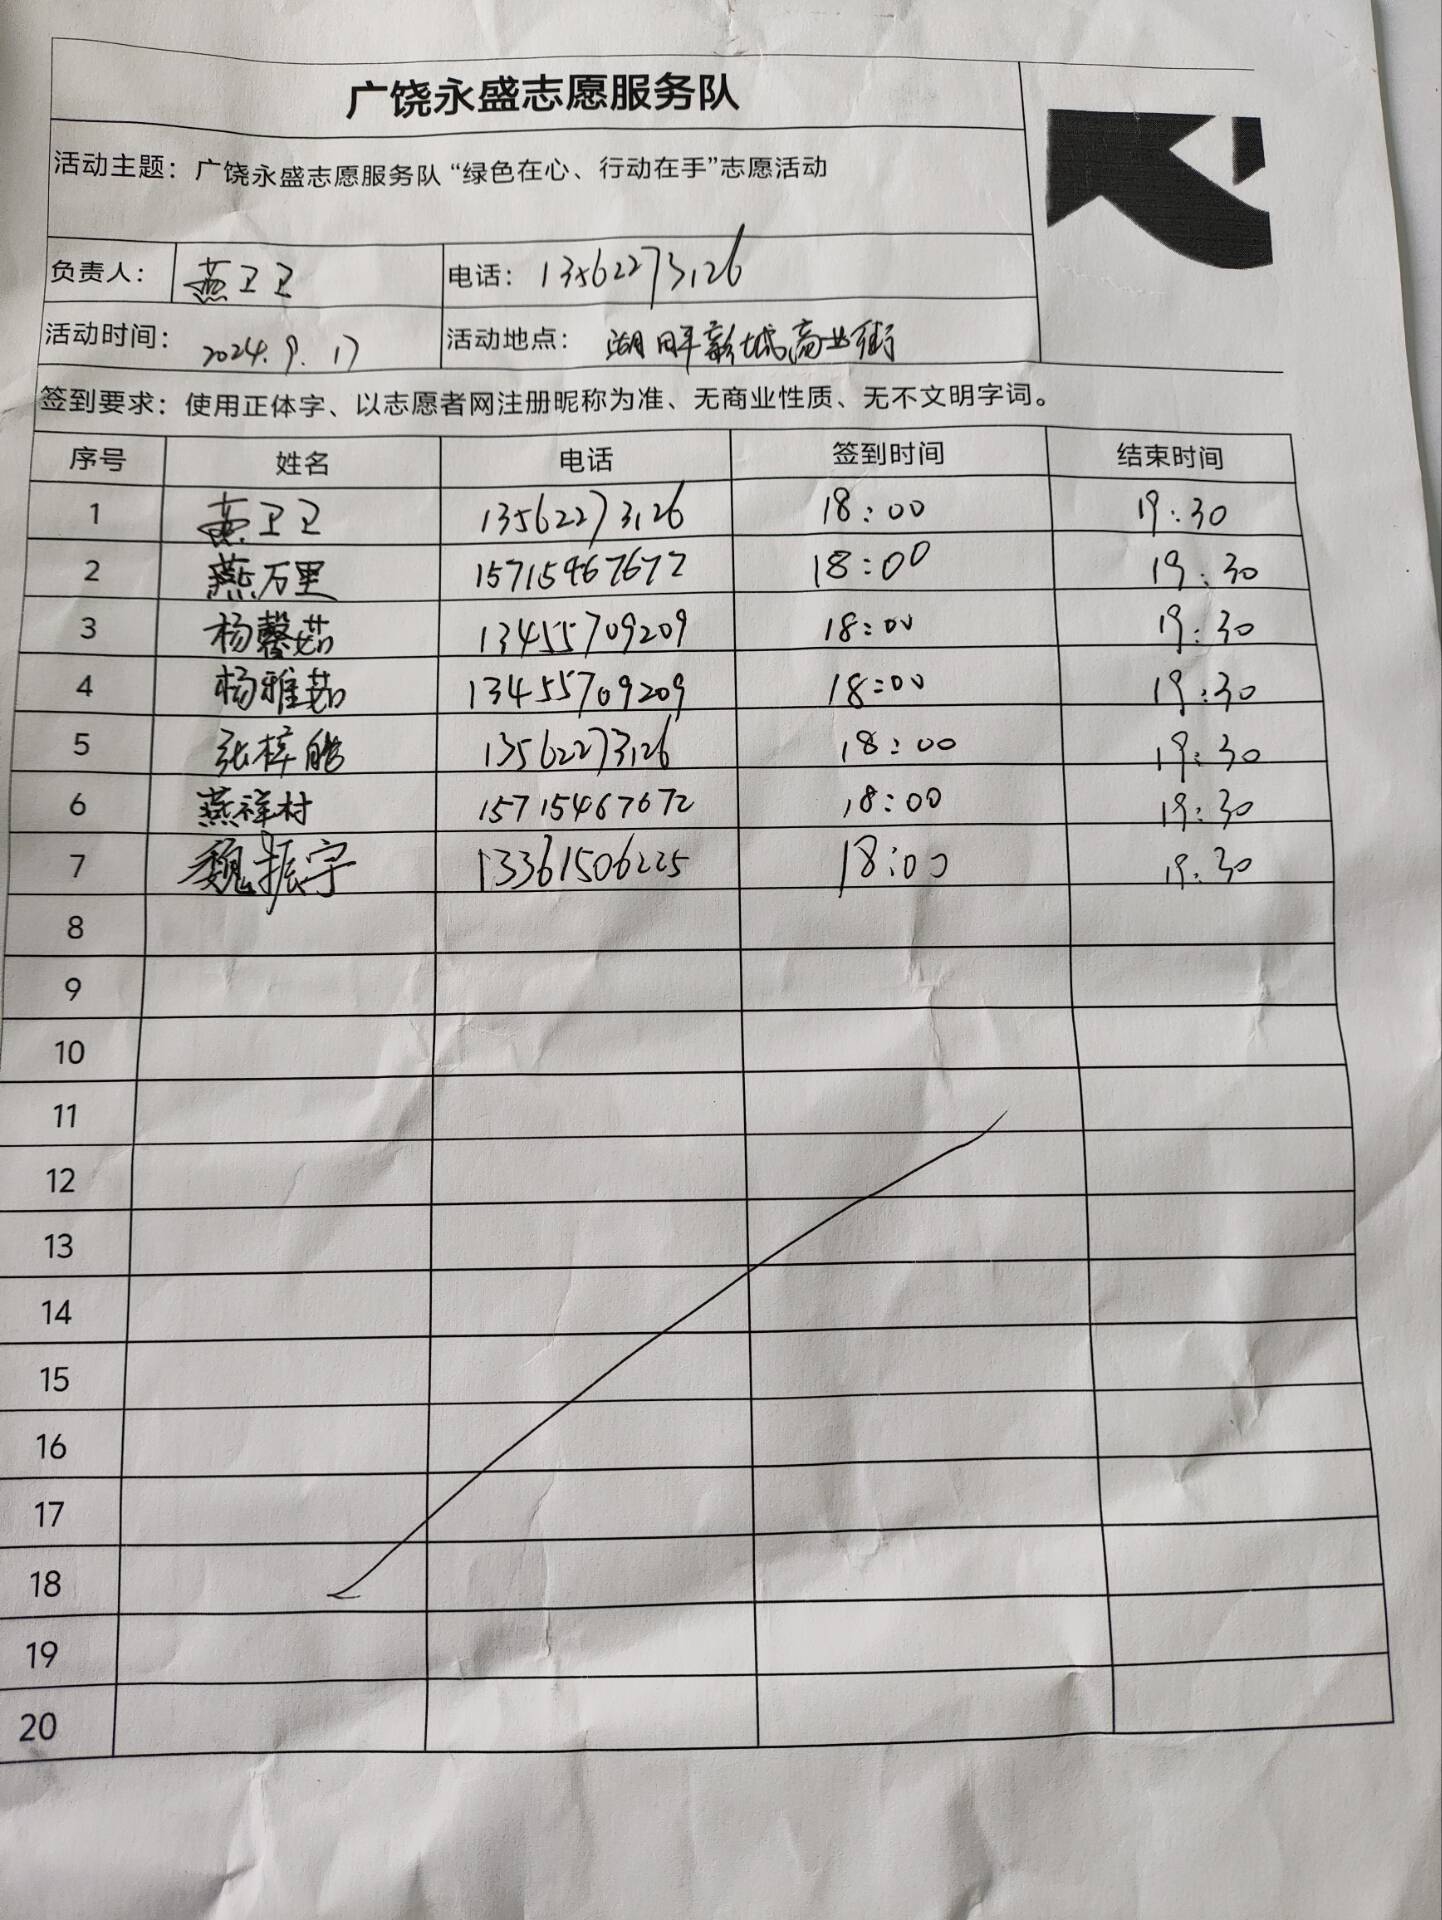 广饶永盛志愿服务队
活动主题：广饶永盛志愿服务队“绿色在心、行动在手”志愿活动
负责人：燕卫卫 电话：13562273126
活动时间：2024.9.17 活动地点：湖畔新城商业街
签到要求：使用正体字、以志愿者网注册昵称为准、无商业性质、无不文明字词。
序号 姓名 电话 签到时间 结束时间
1 燕卫卫 13562273126 18:00 19:30
2 燕万里 15715467672 18:00 19:30
3 杨馨茹 13455709209 18:00 19:30
4 杨雅茹 13455709209 18:00 19:30
5 张梓皓 13562273126 18:00 19:30
6 燕祥村 15715467672 18:00 19:30
7 魏振宇 13361506225 18:00 19:30
8
9
10
11
12
13
14
15
16
17
18
19
20